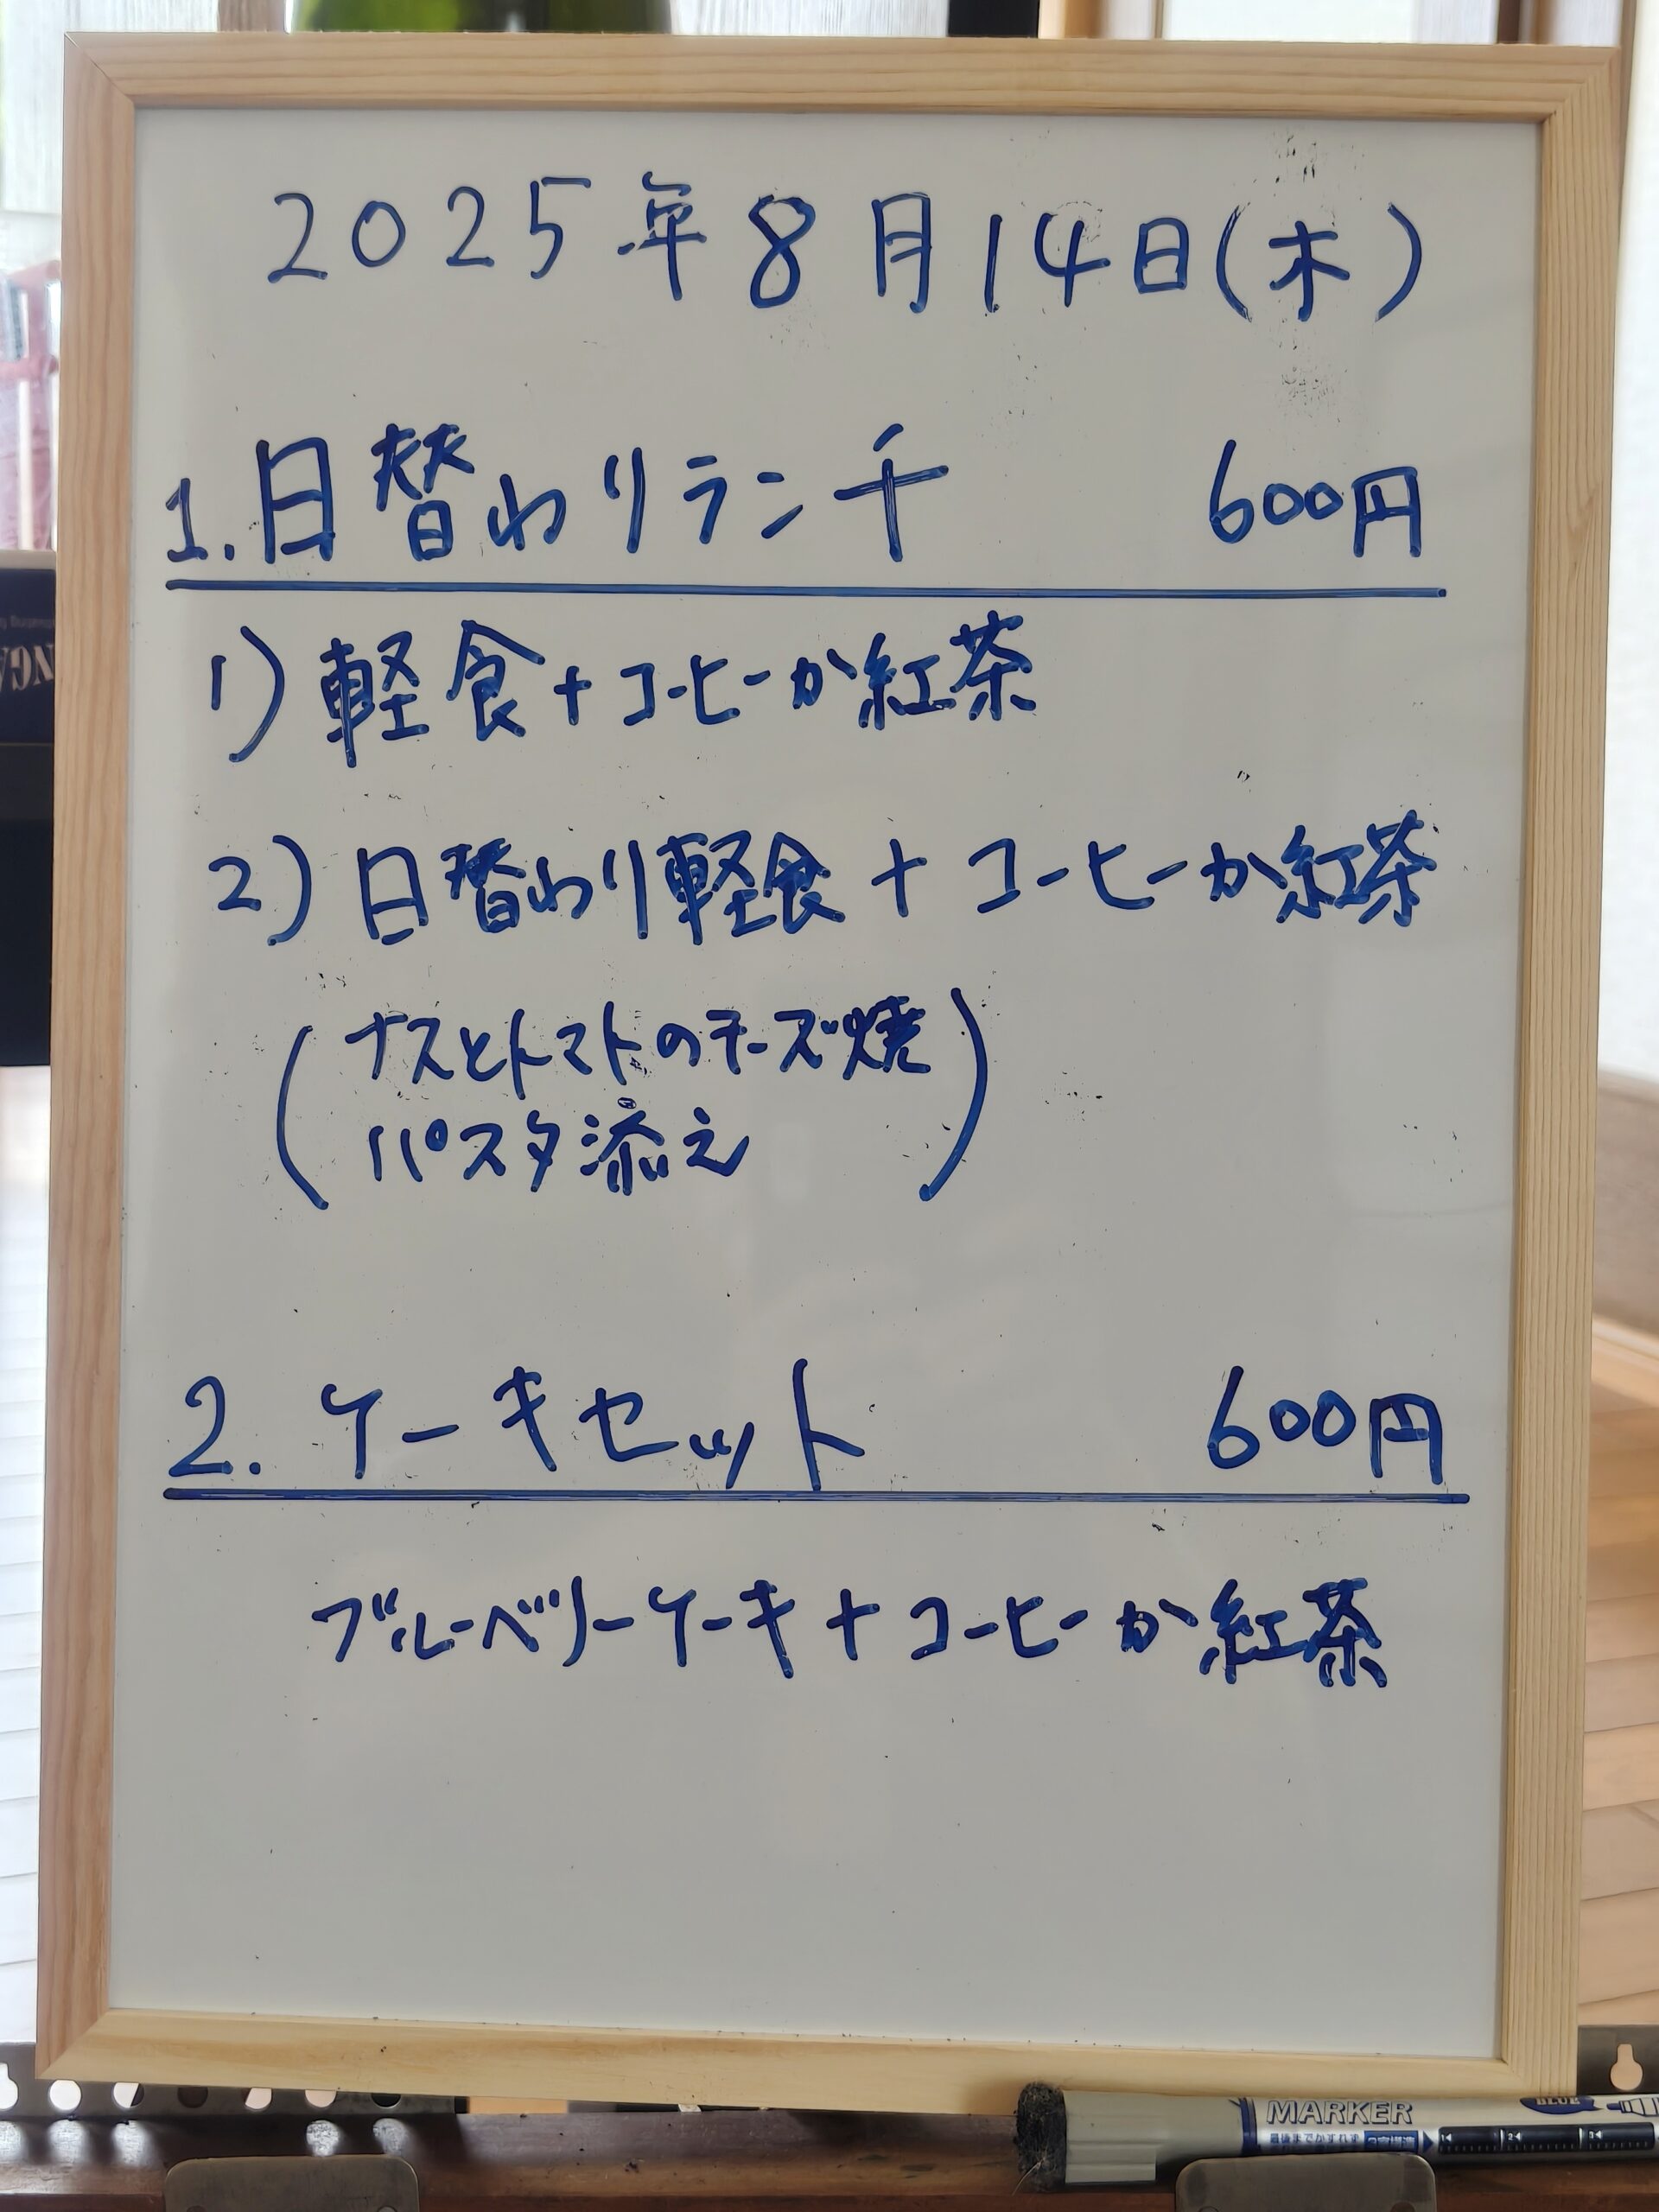 2025年8月14日(木)
1.日替わりランチ 600円
1) 軽食+コーヒーか紅茶
2) 日替わり軽食+コーヒーか紅茶
(ナスとトマトのチーズ焼
パスタ添え)
2. ケーキセット 600円
ブルーベリーケーキ+コーヒーか紅茶
MARKER
BLUE
最後までかすれず